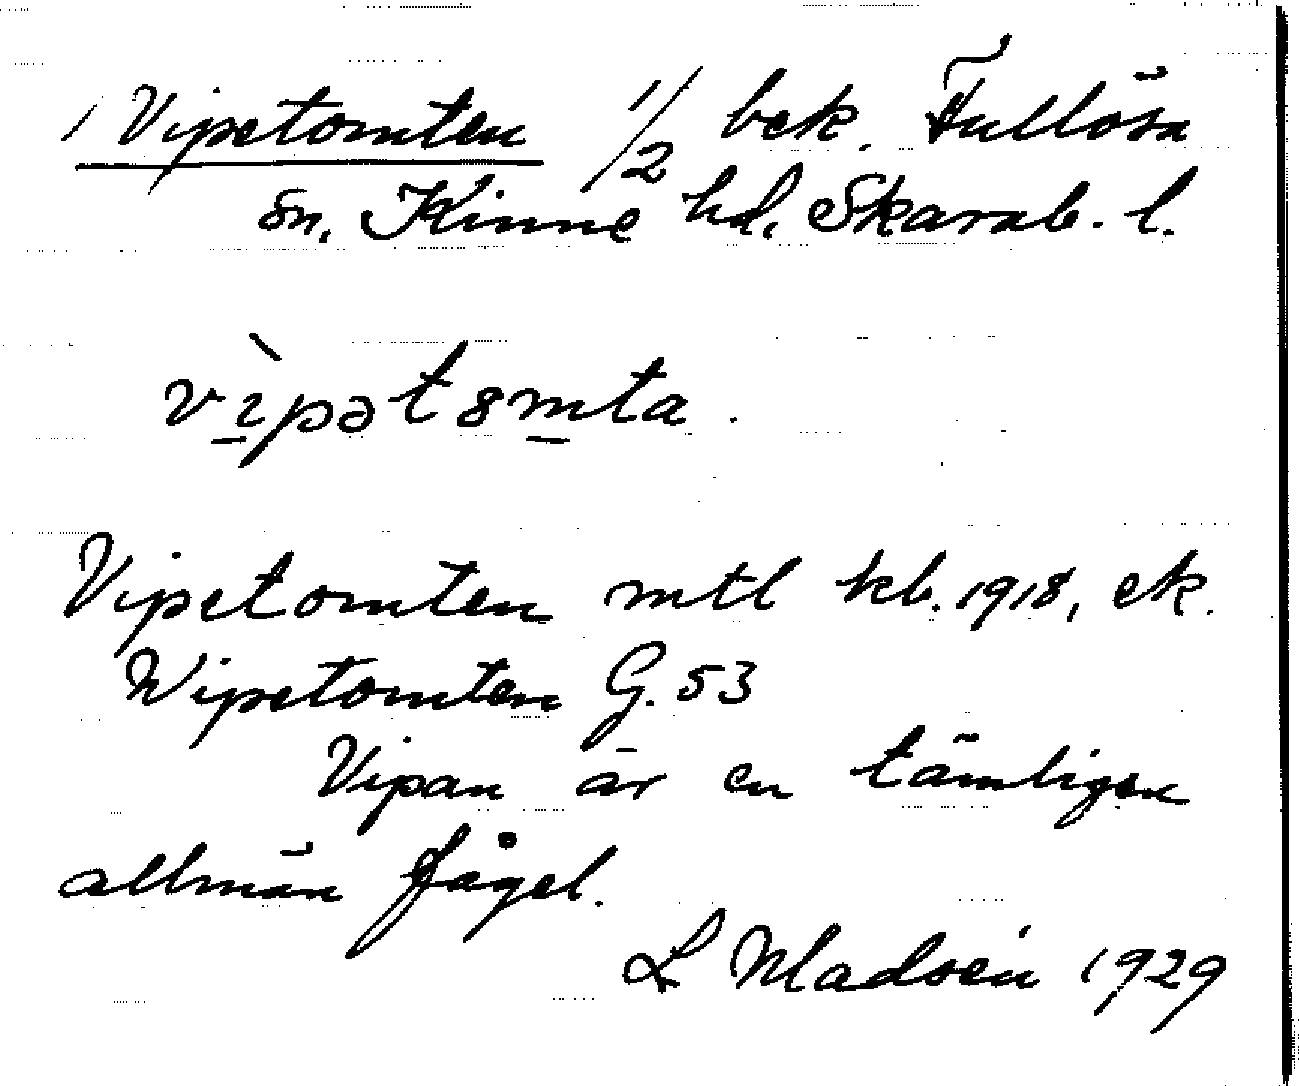 / Vipetomten 1/2 bek. Fullösa
sn. Kinne hd, Skarab. l.
vìpətɵmta.
Vipetomten mtl kb. 1918, ek.
Wipetomten G. 53
Vipan är en tämligen
allmän fågel.
L Madsén 1929